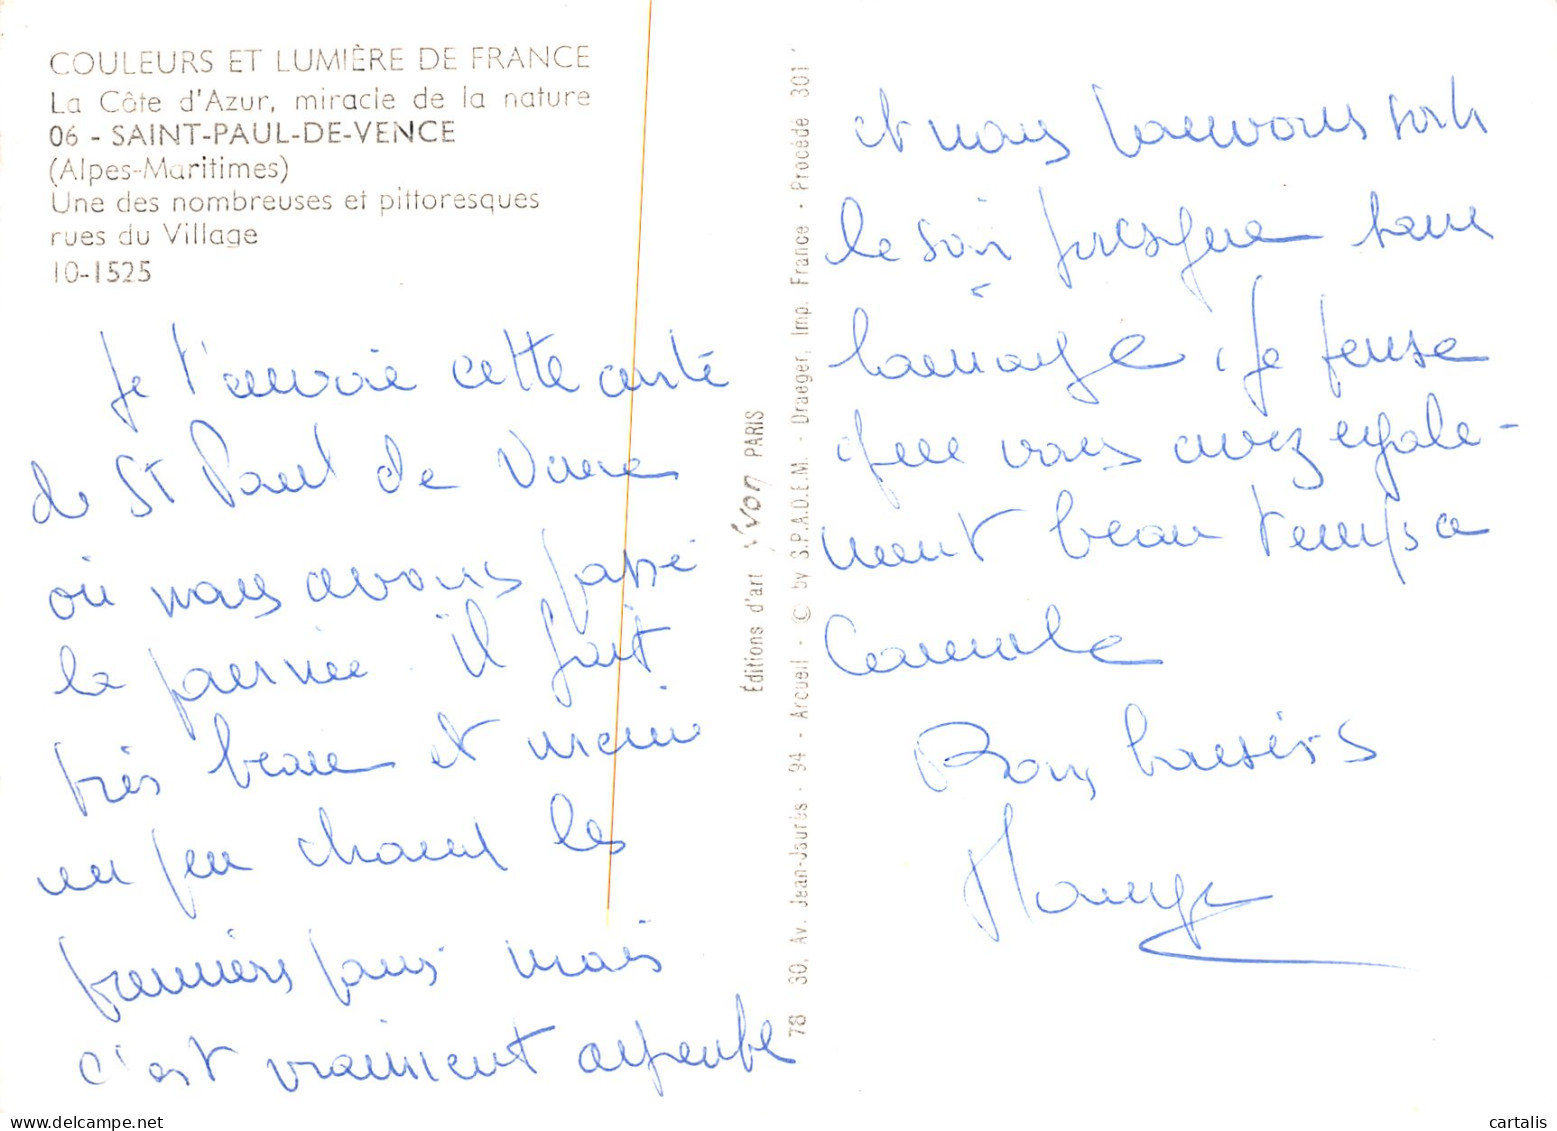 COULEURS ET LUMIÈRE DE FRANCE
La Côte d'Azur, miracle de la nature
06 - SAINT-PAUL-DE-VENCE
(Alpes-Maritimes)
Une des nombreuses et pittoresques
rues du Village
10-1525
Je t'envoie cette carte
de St Paul de Vence
où nous avons passé
la journée. Il fait
très beau et même
un peu chaud les
premiers jours mais
c'est vraiment agréable
Éditions d'art Yvon PARIS
78 30, Av. Jean-Jaurès - 94 - Arcueil - © by S.P.A.D.E.M. - Draeger, Imp. France - Procédé 301
et nous pouvons sortir
le soir presque sans
lainage, je pense
que vous avez égale-
ment beau temps a
Bons baisers
cartalis